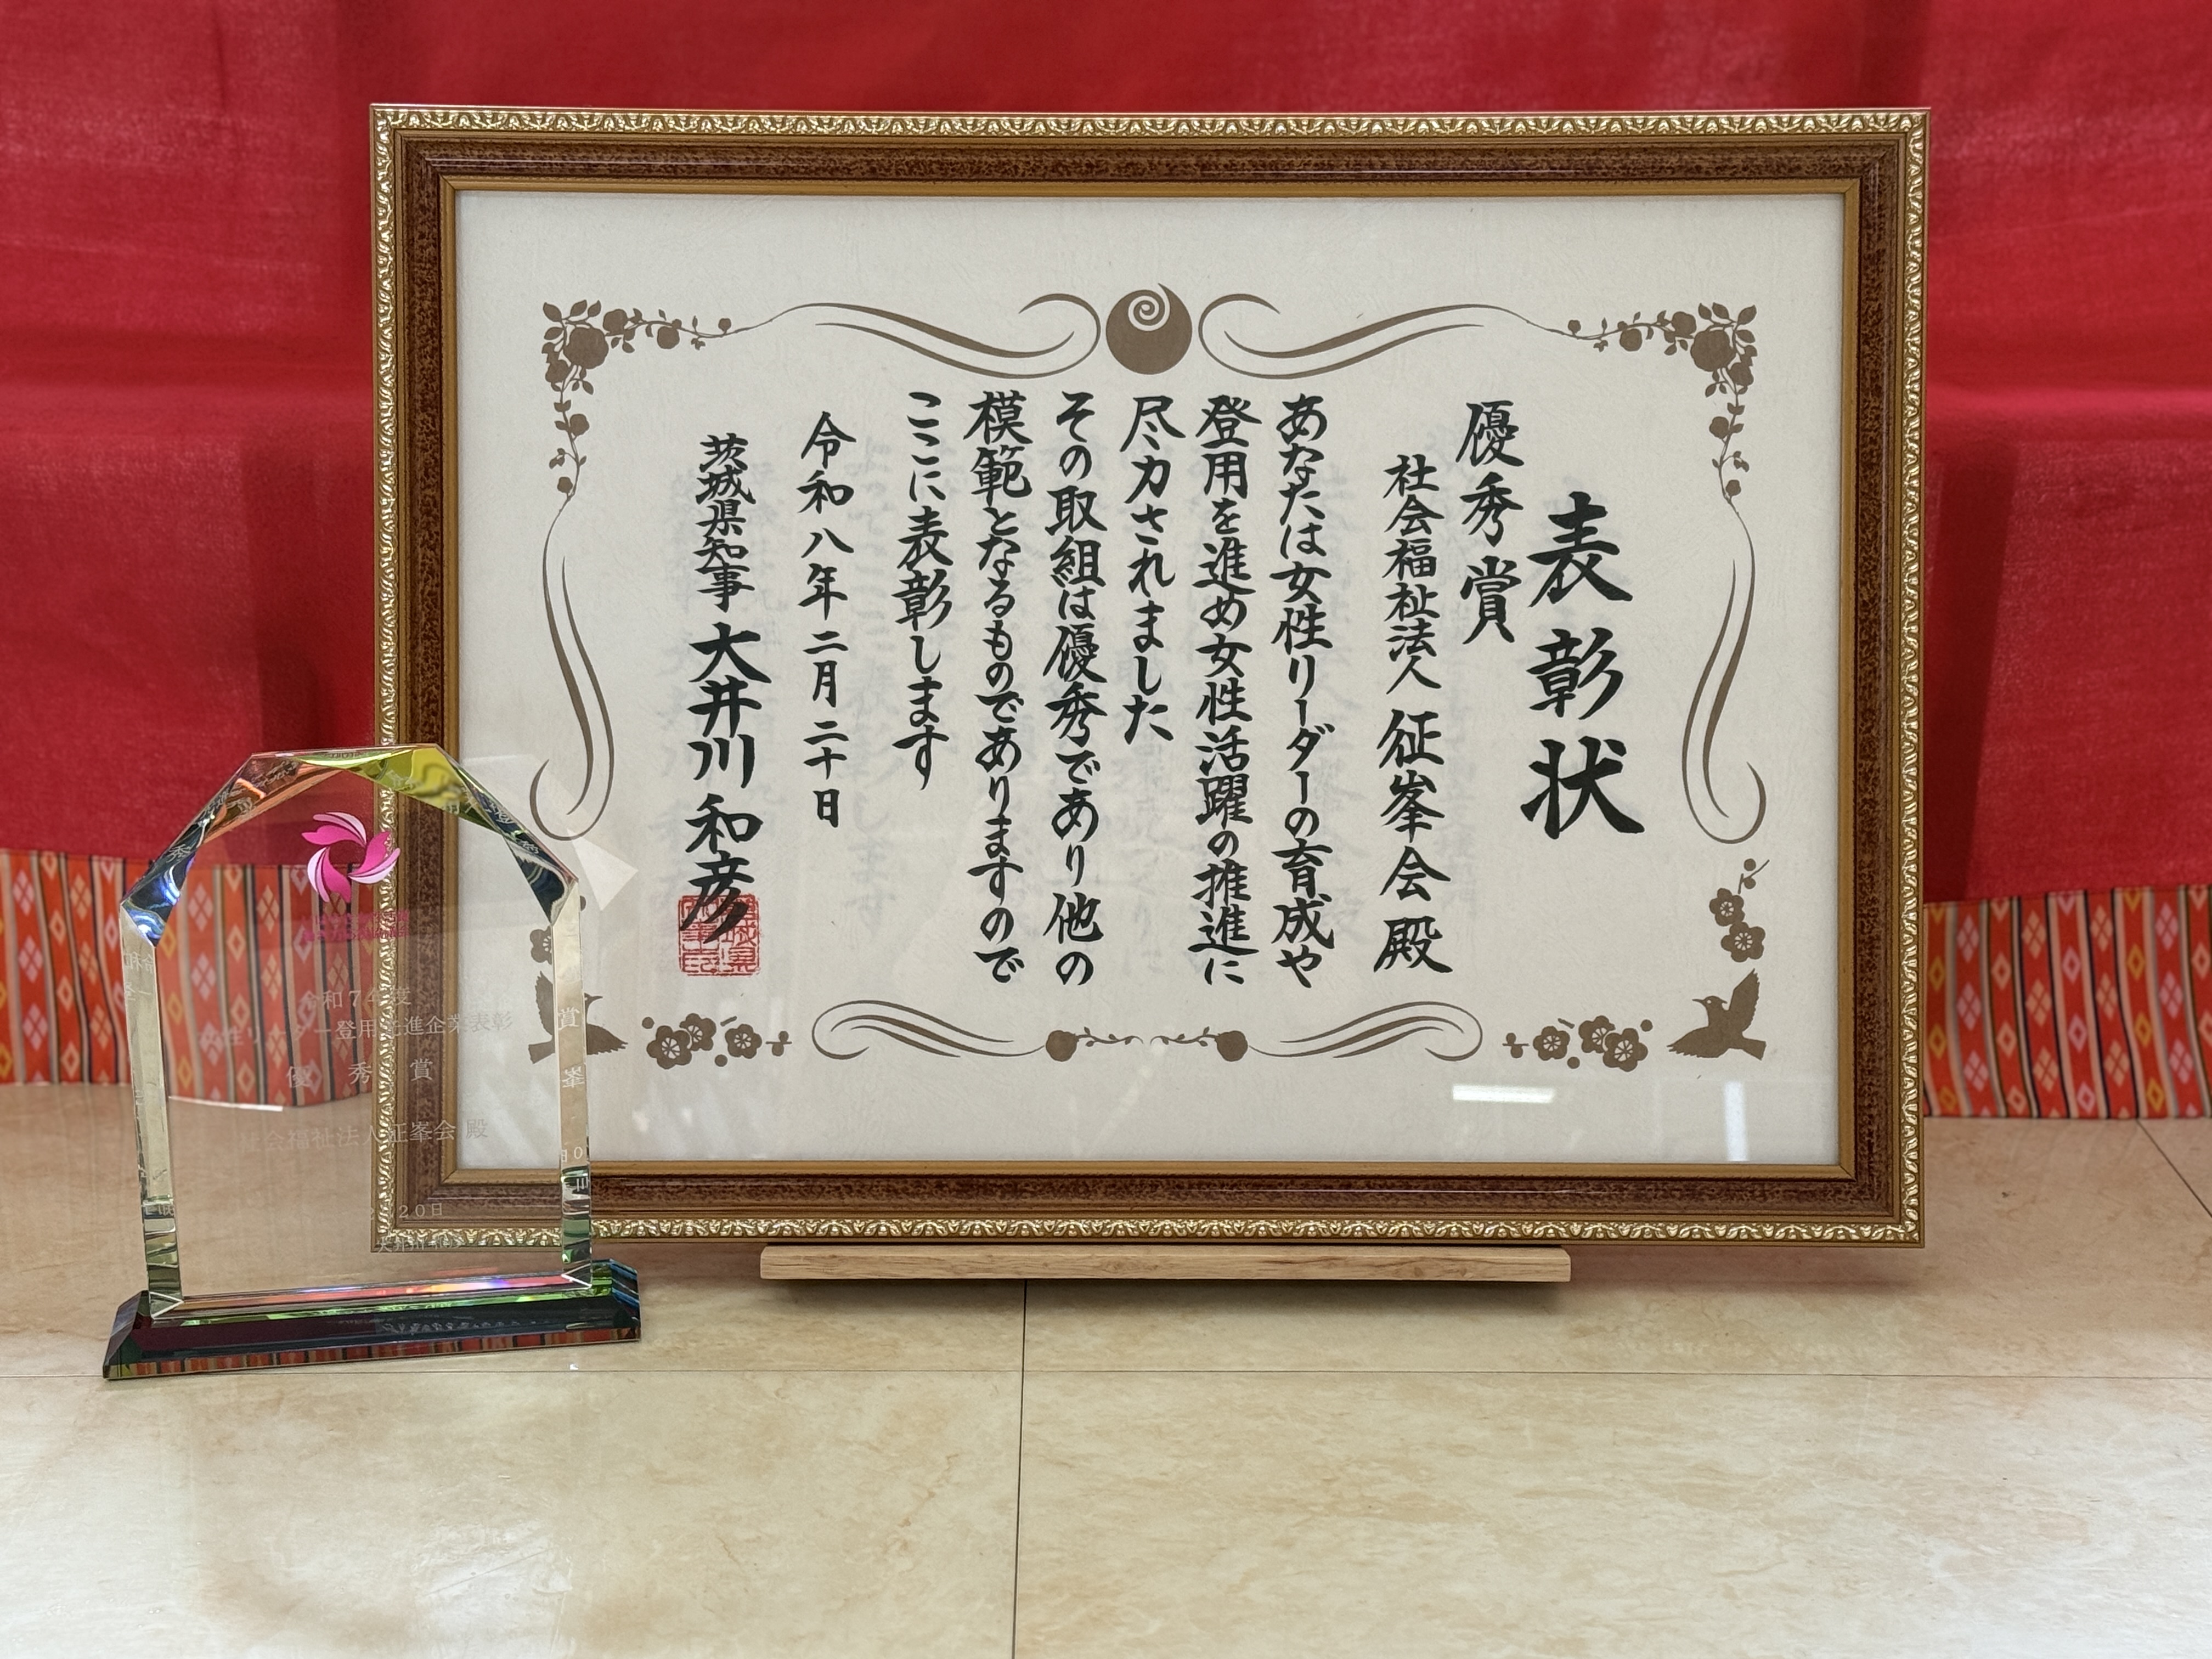 表彰状
優秀賞
社会福祉法人 征峯会 殿
あなたは女性リーダーの育成や
登用を進め女性活躍の推進に
尽力されました
その取組は優秀であり他の
模範となるものでありますので
ここに表彰します
令和八年二月二十日
茨城県知事 大井川 和彦
令和7年度
性リーダー登用先進企業表彰
優秀賞
会福祉法人征峯会 殿
20日